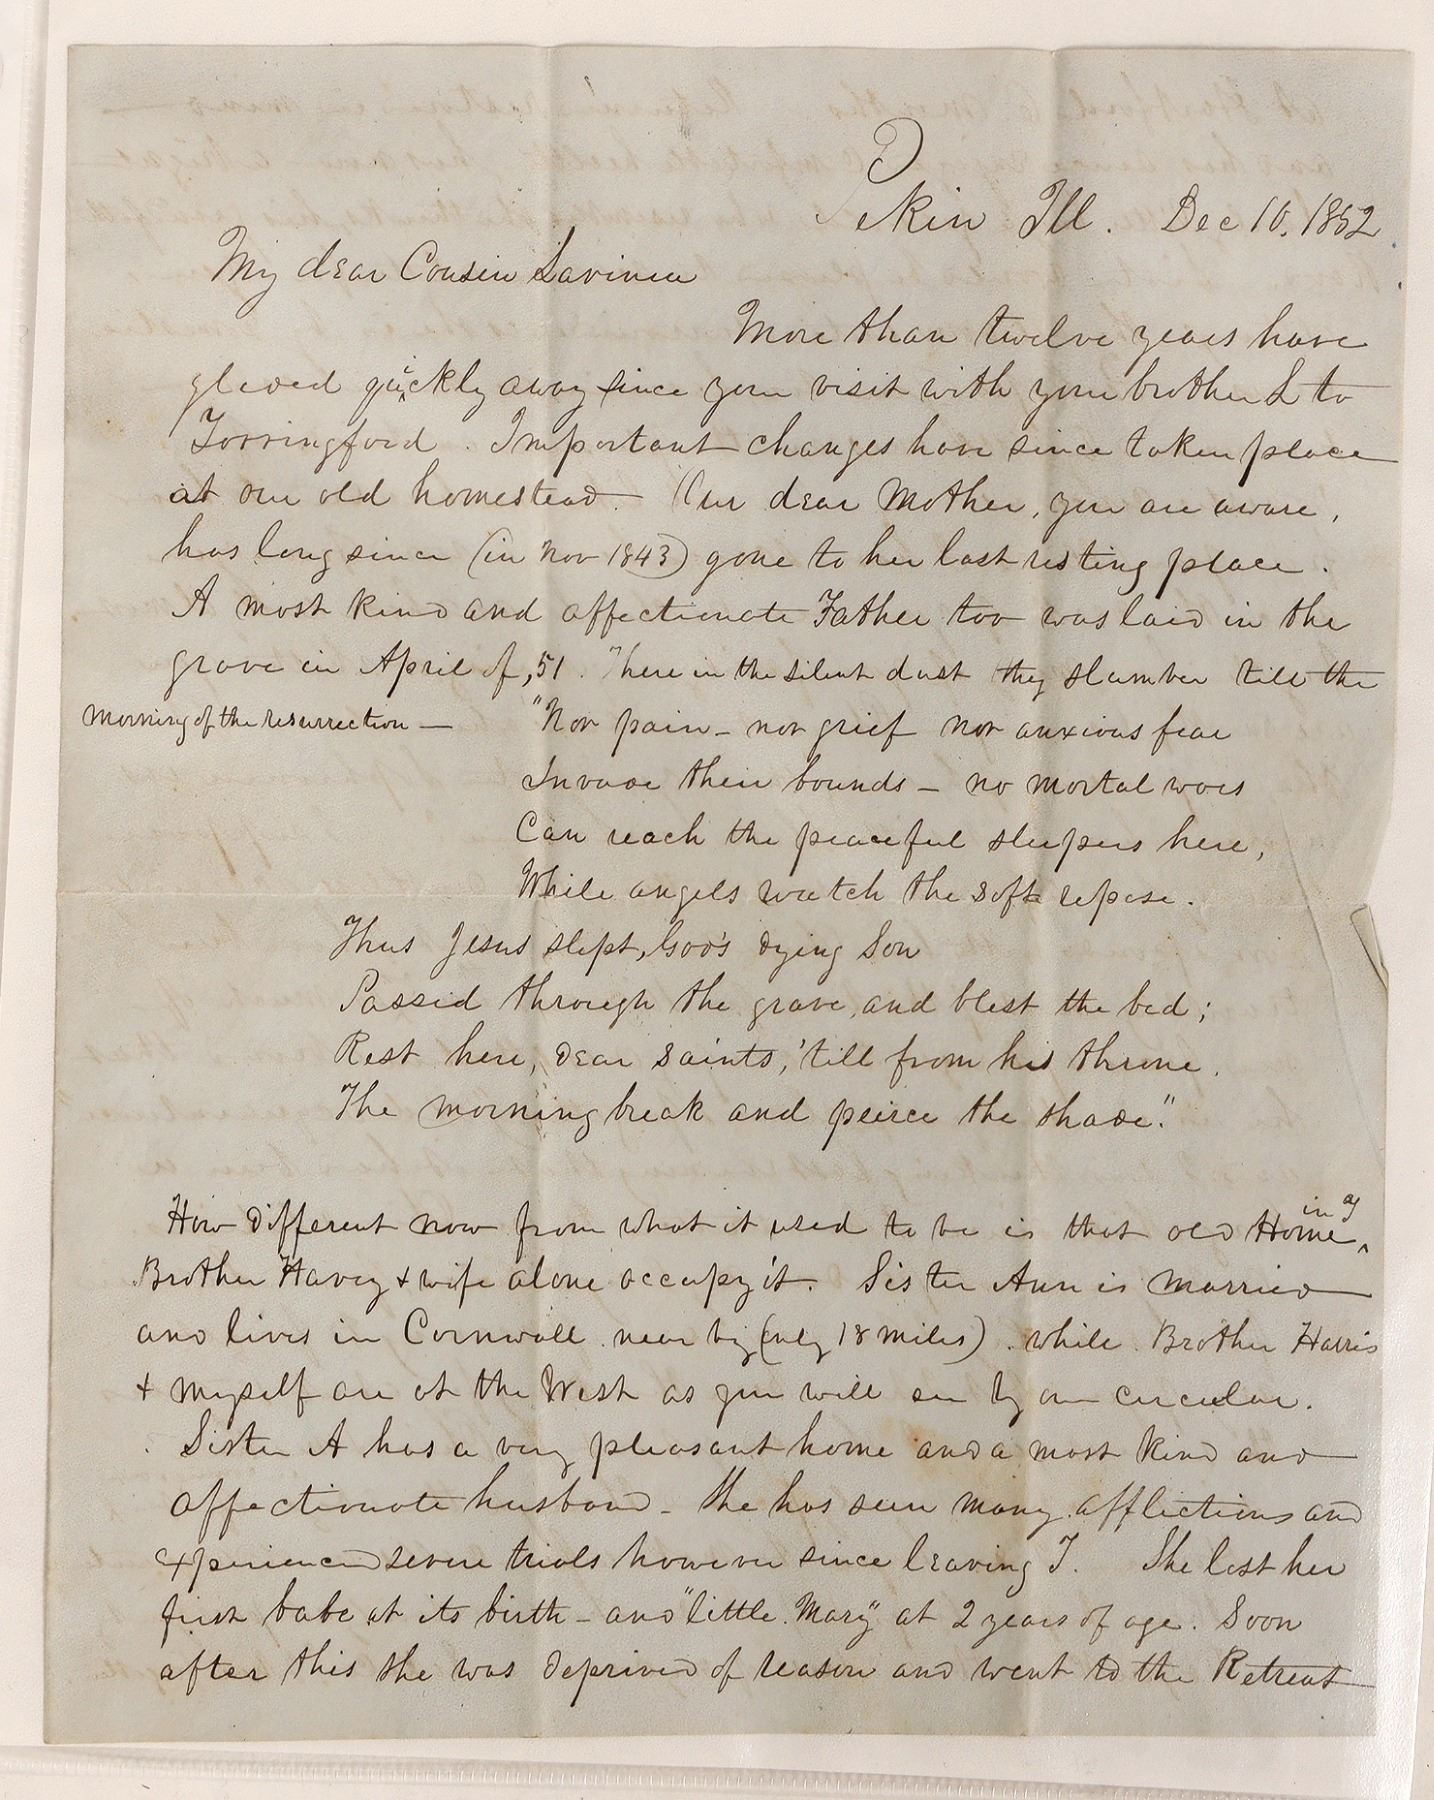 Pekin Ill. Dec 10, 1852
My dear Cousin Lavinia
More than twelve years have
glided quickly away since your visit with your brother L to
Torringford. Important changes have since taken place
at our old homestead. Our dear Mother, you are aware,
has long since (in Nov 1843) gone to her last resting place.
A most kind and affectionate Father too was laid in the
grave in April of ,51. There in the silent dust they slumber till the
morning of the resurrection —
"Nor pain - nor grief nor anxious fear
Invade their bounds - no mortal woes
Can reach the peaceful sleepers here,
While angels watch the soft repose.
Thus Jesus slept, God's dying Son
Passed through the grave, and blest the bed;
Rest here, dear saints, 'till from his throne
The morning break and peirce the shade."
How different now from what it used to be is that old Home, in
Brother Harvey & wife alone occupy it. Sister Ann is married
and lives in Cornwall near by (only 18 miles). while Brother Harris
& myself are at the West as you will see by our circular.
Sister A has a very pleasant home and a most kind and
affectionate husband - She has seen many afflictions and
experienced severe trials however since leaving T. She lost her
first babe at its birth - and "little Mary" at 2 years of age. Soon
after this she was deprived of reason and went to the Retreat